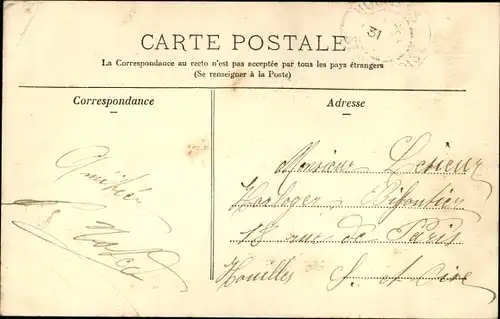 CARTE POSTALE
La Correspondance au recto n'est pas acceptée par tous les pays étrangers
(Se renseigner à la Poste)
Correspondance
Adresse
Monsieur Lesieur
Horloger Bijoutier
18 rue de Paris
Houilles S. et Oise